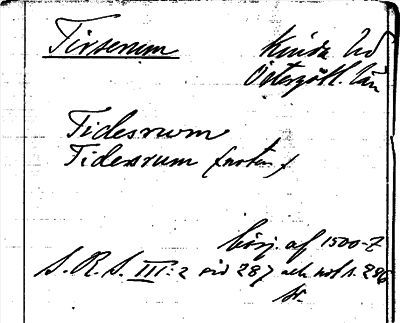 Tirserum
Kinda hd
Östergötl. län
Tidesrwm
Tidersrum (noten)
börj. af 1500-t
S. R. S. III: 2 sid 287 och not s. 286